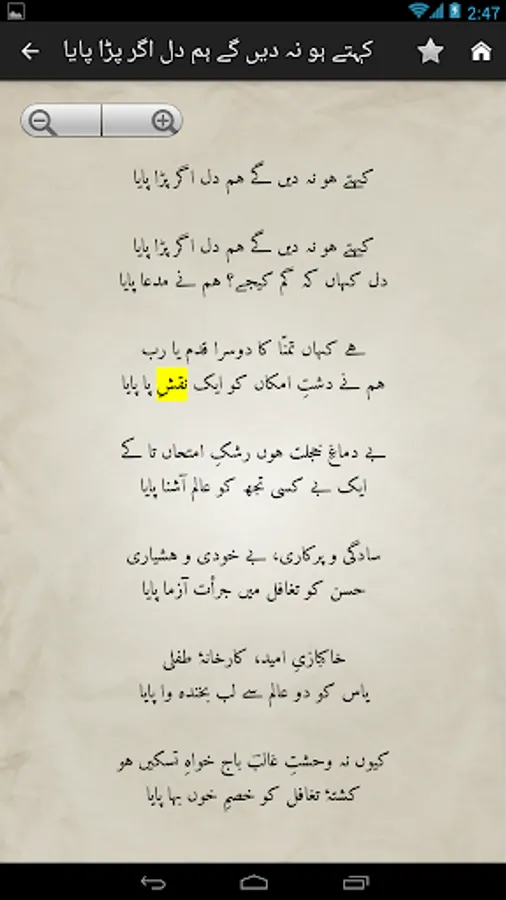 2:47
کہتے ہو نہ دیں گے ہم دل اگر پڑا پایا
کہتے ہو نہ دیں گے ہم دل اگر پڑا پایا
کہتے ہو نہ دیں گے ہم دل اگر پڑا پایا
دل کہاں کہ گم کیجے؟ ہم نے مدعا پایا
ہے کہاں تمنّا کا دوسرا قدم یا رب
ہم نے دشتِ امکاں کو ایک نقشِ پا پایا
بے دماغِ خجلت ہوں رشکِ امتحاں تا کے
ایک بے کسی تجھ کو عالم آشنا پایا
سادگی و پرکاری، بے خودی و ہشیاری
حسن کو تغافل میں جرأت آزما پایا
خاکبازیِ امید، کارخانۂ طفلی
یاس کو دو عالم سے لب بخندہ وا پایا
کیوں نہ وحشتِ غالبؔ باج خواہِ تسکیں ہو
کشتۂ تغافل کو خصمِ خوں بہا پایا